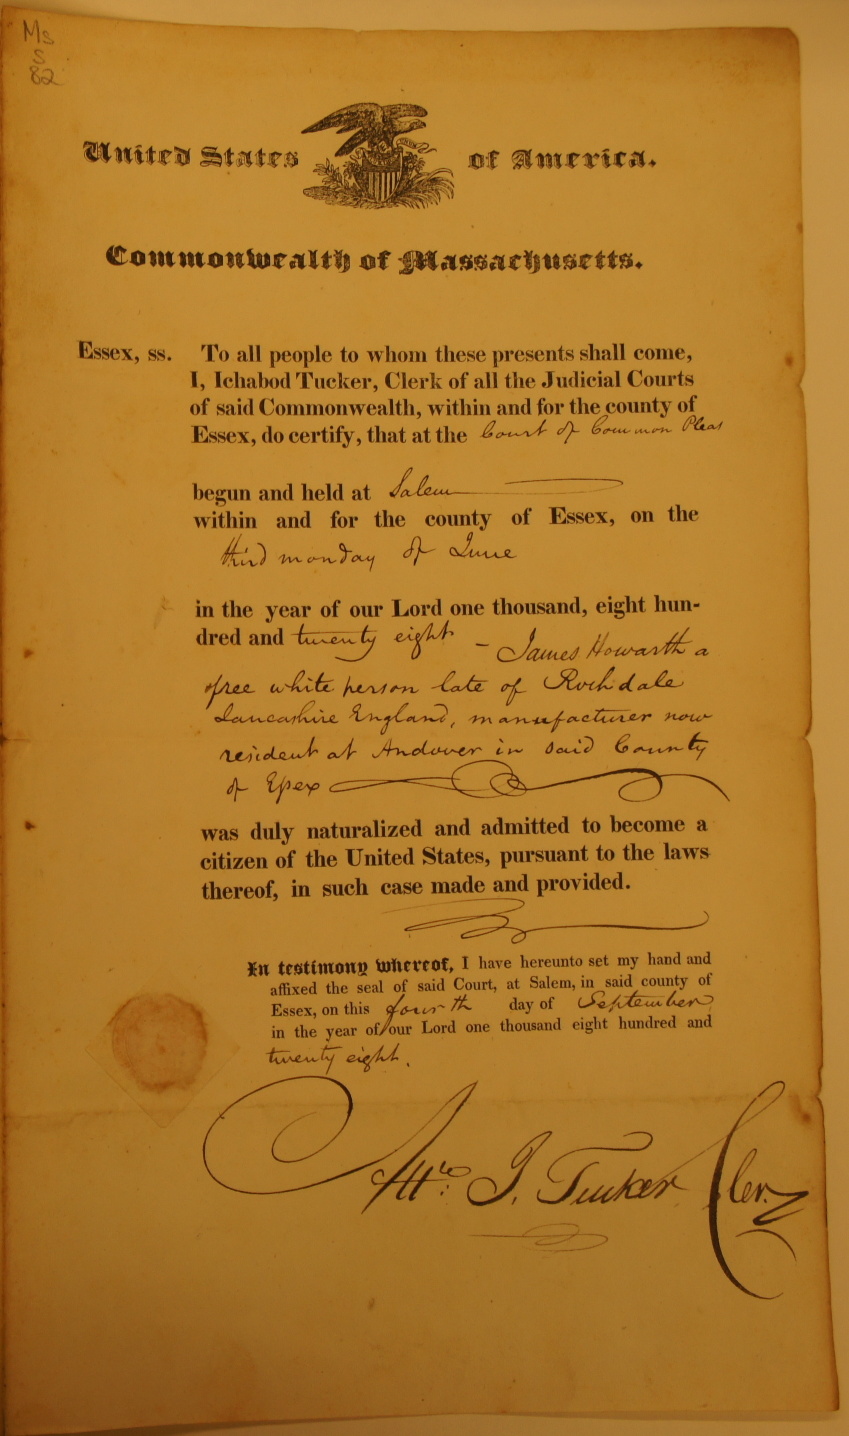 Ms
S
82
United States of America.
Commonwealth of Massachusetts.
Essex, ss. To all people to whom these presents shall come,
I, Ichabod Tucker, Clerk of all the Judicial Courts
of said Commonwealth, within and for the county of
Essex, do certify, that at the Court of Common Pleas
begun and held at Salem
within and for the county of Essex, on the
third monday of June
in the year of our Lord one thousand, eight hun-
dred and twenty eight - James Howarth a
free white person late of Rochdale
Lancashire England, manufacturer now
resident at Andover in said County
of Essex
was duly naturalized and admitted to become a
citizen of the United States, pursuant to the laws
thereof, in such case made and provided.
In testimony whereof, I have hereunto set my hand and
affixed the seal of said Court, at Salem, in said county of
Essex, on this fourth day of September
in the year of our Lord one thousand eight hundred and
twenty eight.
J. Tucker Cler.